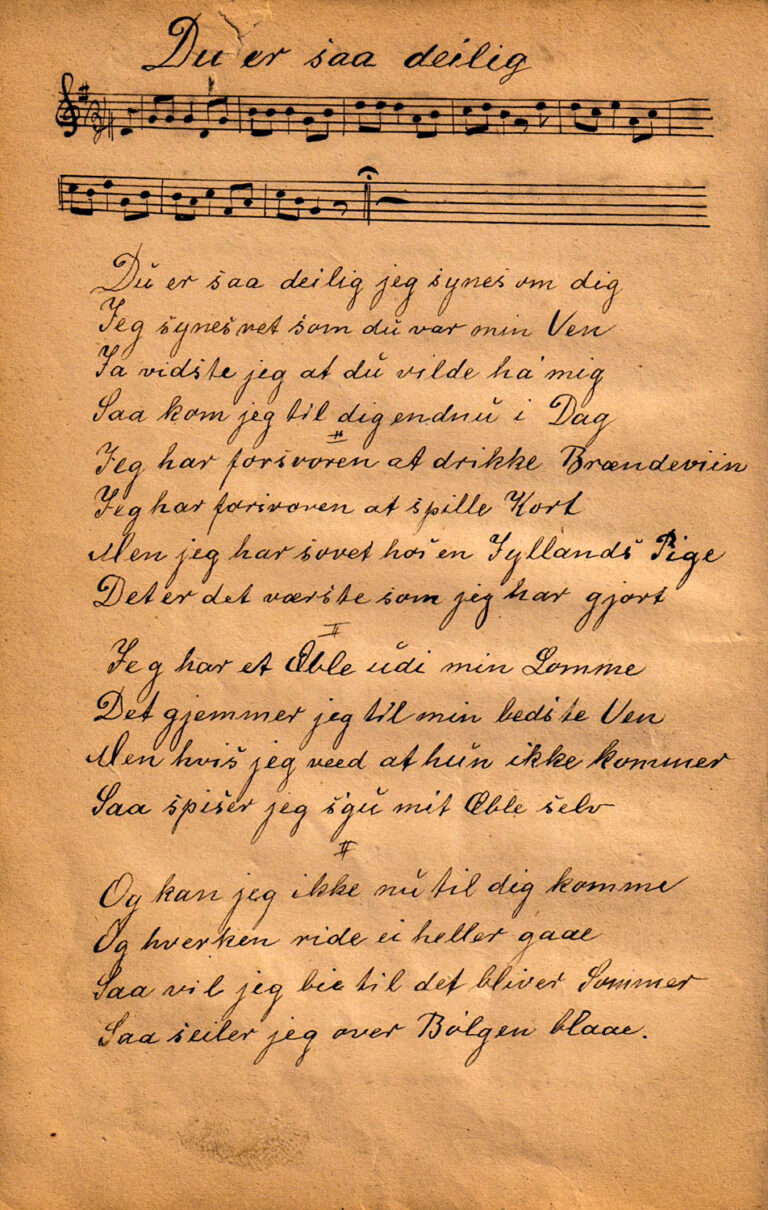 Du er saa deilig
Du er saa deilig jeg synes om dig
Jeg synes ret som du var min Ven
Ja vidste jeg at du vilde ha' mig
Saa kom jeg til dig endnu i Dag
Jeg har forsvoren at drikke Brændeviin
Jeg har forsvoren at spille Kort
Men jeg har sovet hos en Jyllands Pige
Det er det værste som jeg har gjort
II
Jeg har et Æble udi min Lomme
Det gjemmer jeg til min bedste Ven
Men hvis jeg veed at hun ikke kommer
Saa spiser jeg s'gu mit Æble selv
Og kan jeg ikke nu til dig komme
Og hverken ride ei heller gaae
Saa vil jeg bie til det bliver Sommer
Saa seiler jeg over Bølgen blaae.